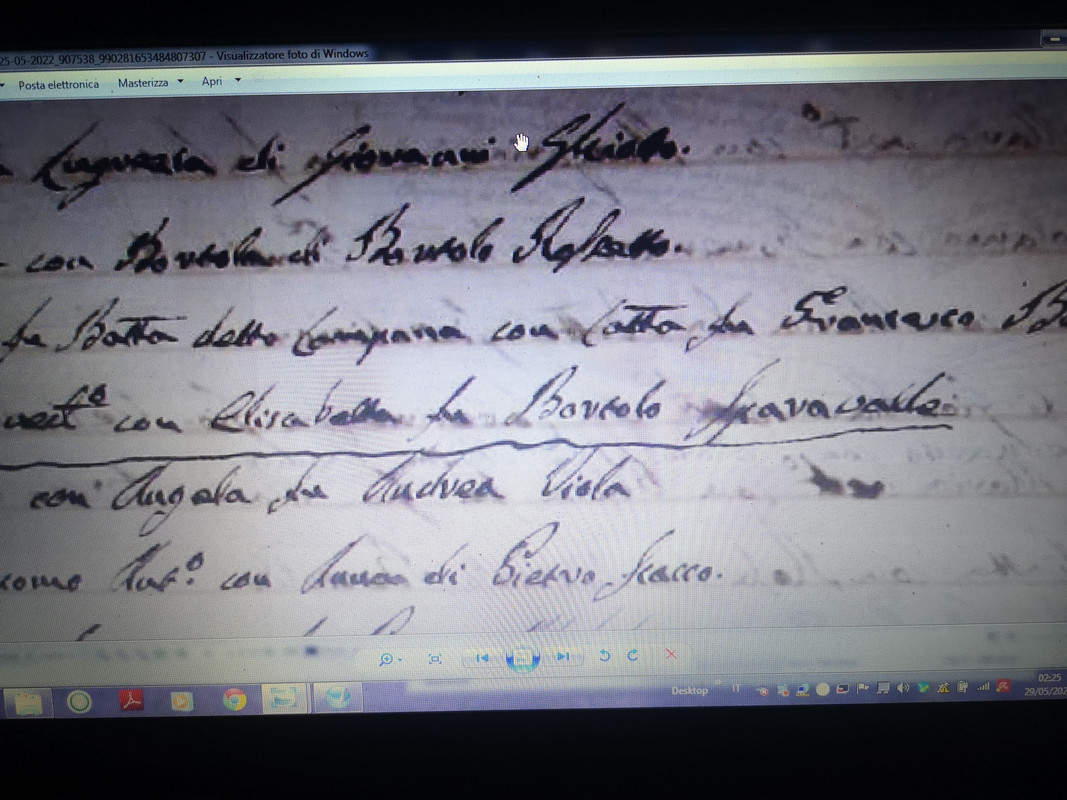 25-05-2022_907538_990281653484807307 - Visualizzatore foto di Windows
Posta elettronica Masterizza Apri
Lugrezia di Giovanni
con Bortola di Bortolo
fu Batta detto Campana con Catta fu Francesco
con Elisabetta fu Bortolo Scaravalle
con Angela fu Andrea Viola
como Ant.o con Anna di Pietro Sacco.
Desktop IT 02:25
29/05/202